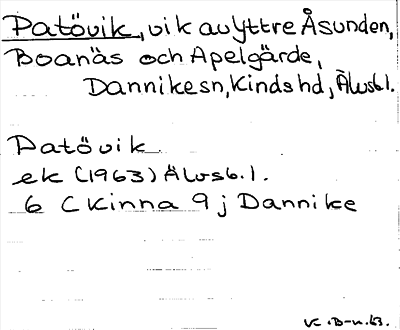 Patövik, vik av Yttre Åsunden,
Boanäs och Apelgärde,
Dannike sn, Kinds hd, Älvsb.l.
Patövik
ek (1963) Älvsb.l.
6 C Kinna 9 j Dannike
VC.B-n.63.